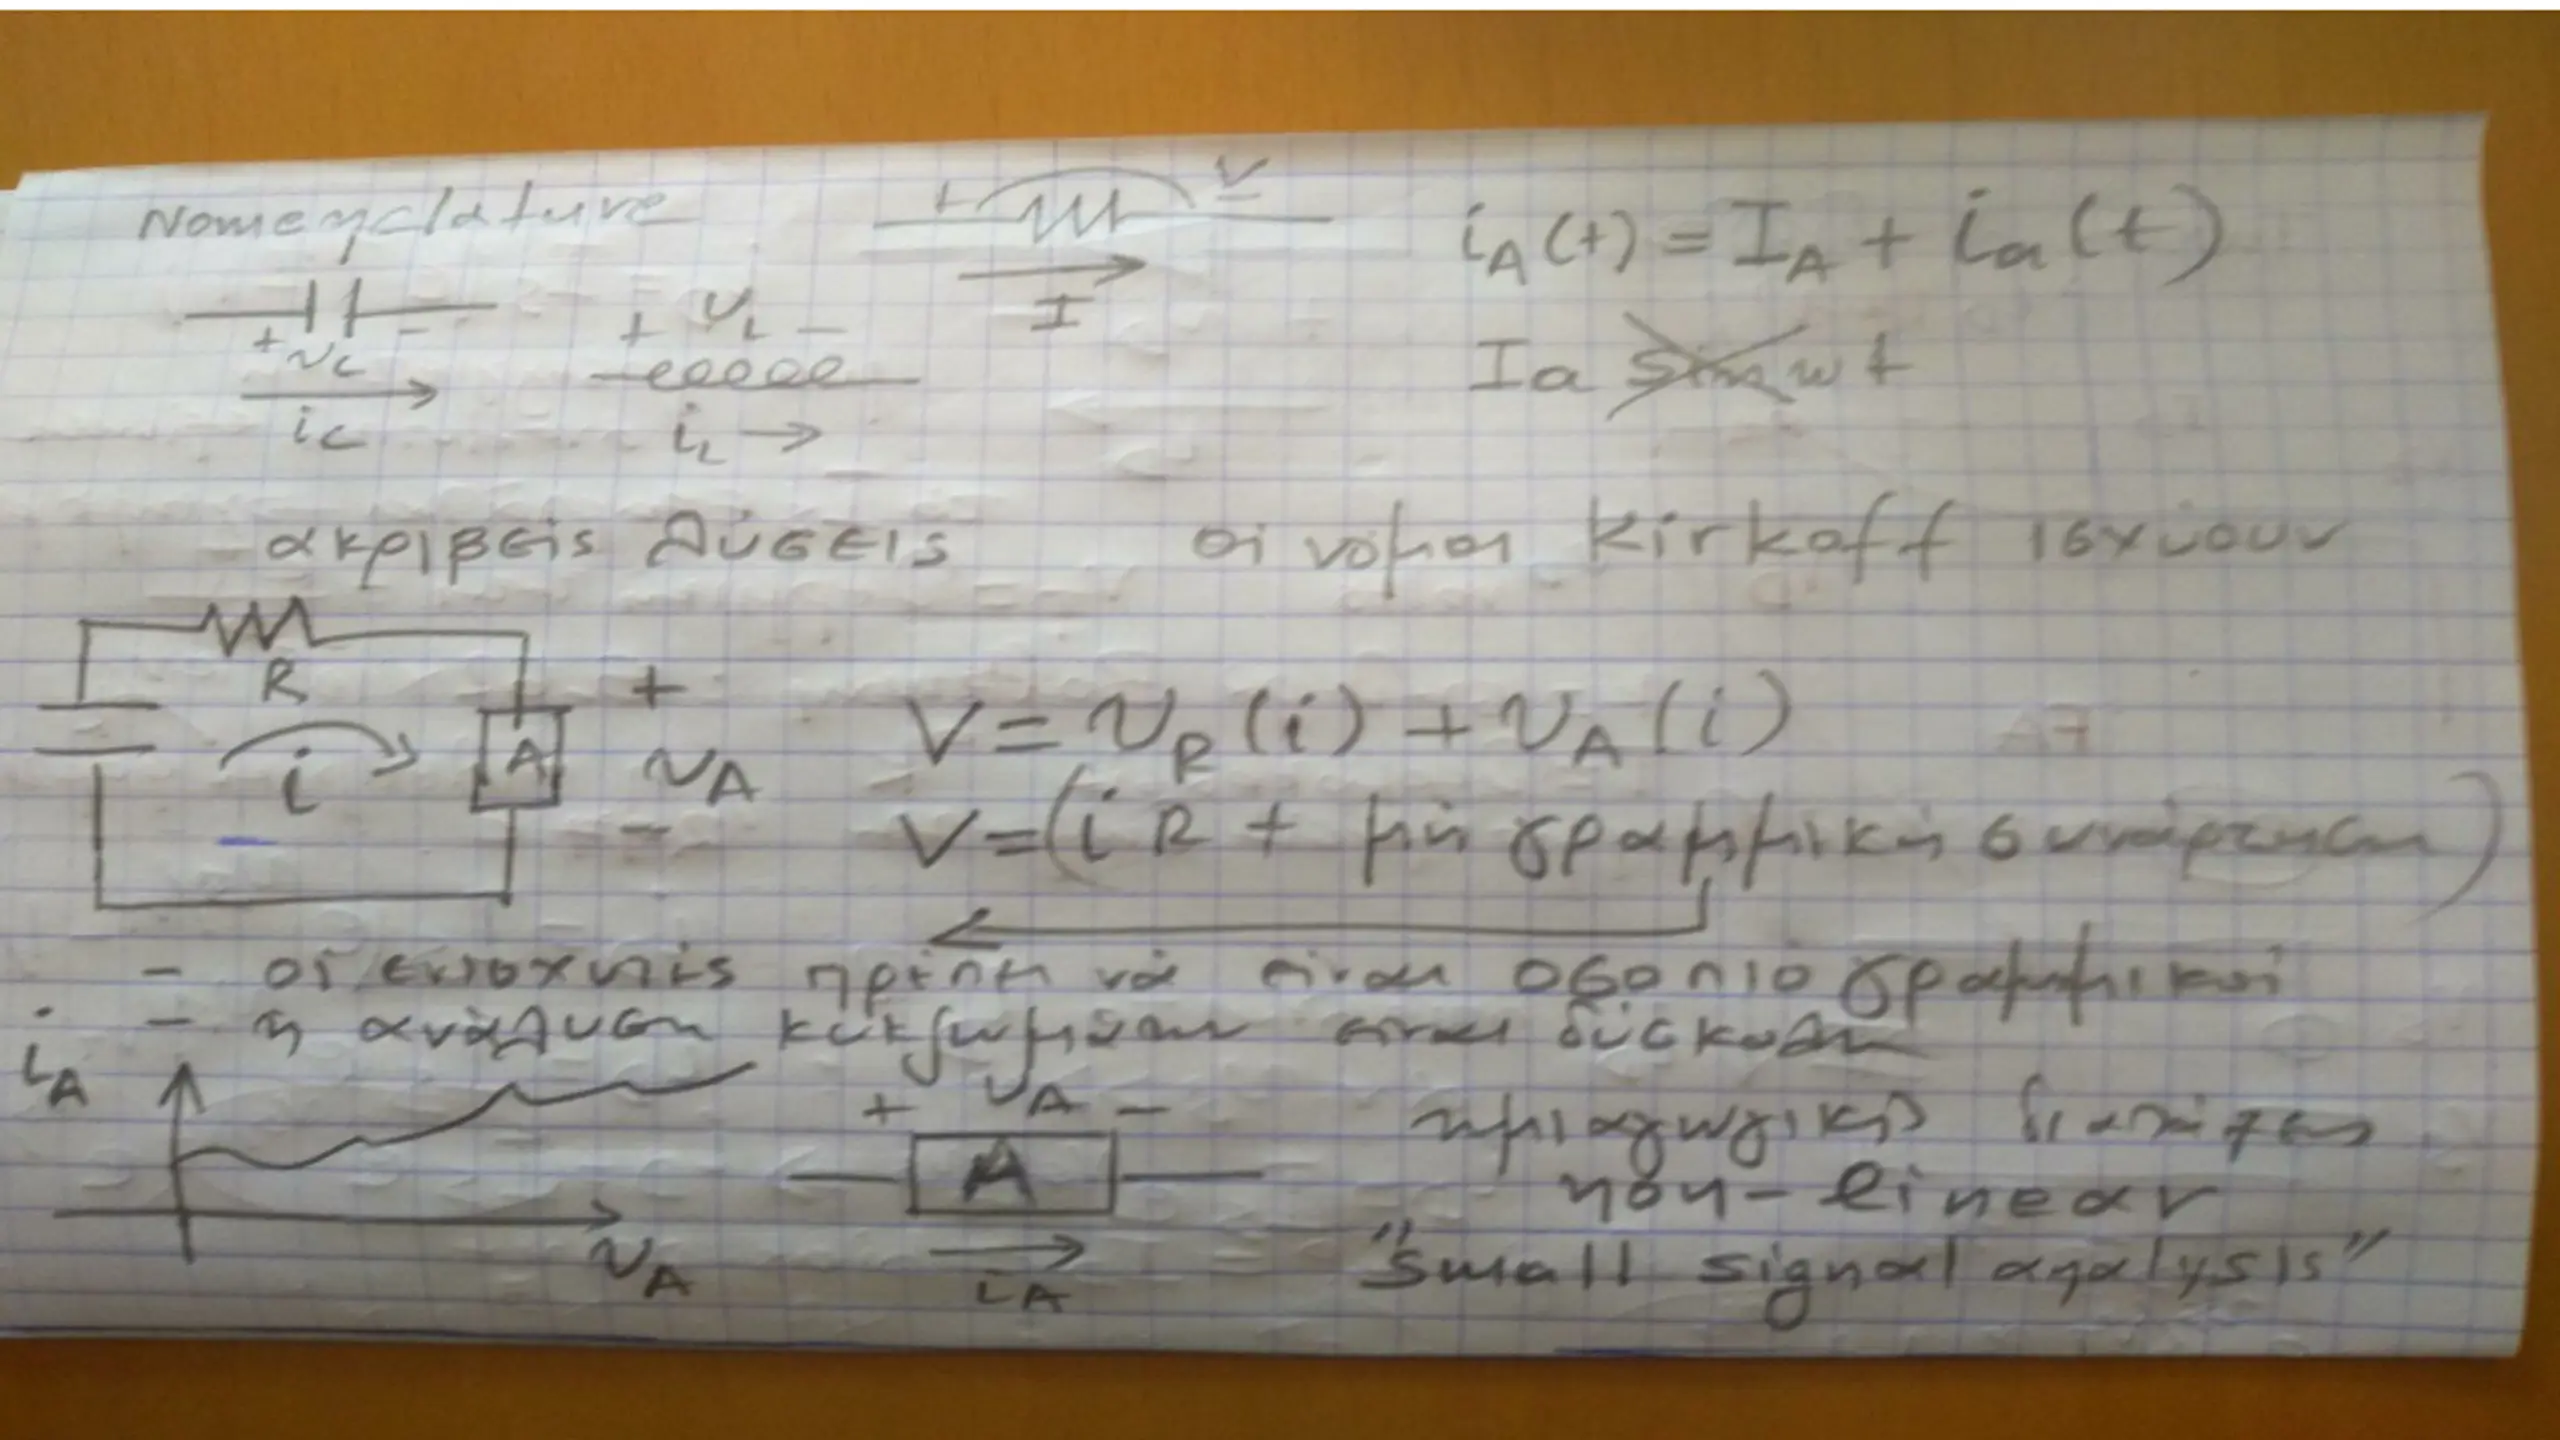 Nomenclature
+ V -
I
+ vc -
ic
+ υL -
iL
iA(t) = IA + ia(t)
Ia sinωt
ακριβείς λύσεις
οι νόμοι Kirkoff ισχύουν
R
i
A
+
vA
-
V = vR(i) + vA(i)
V = (iR + μή γραμμική συνάρτηση)
- οι ενισχυτές πρέπει νά είναι όσο πιο γραμμικοί
- η ανάλυση κυκλωμάτων είναι δύσκολη
iA
vA
+ vA -
A
iA
ημιαγωγικές διατάξεις
non-linear
"small signal analysis"